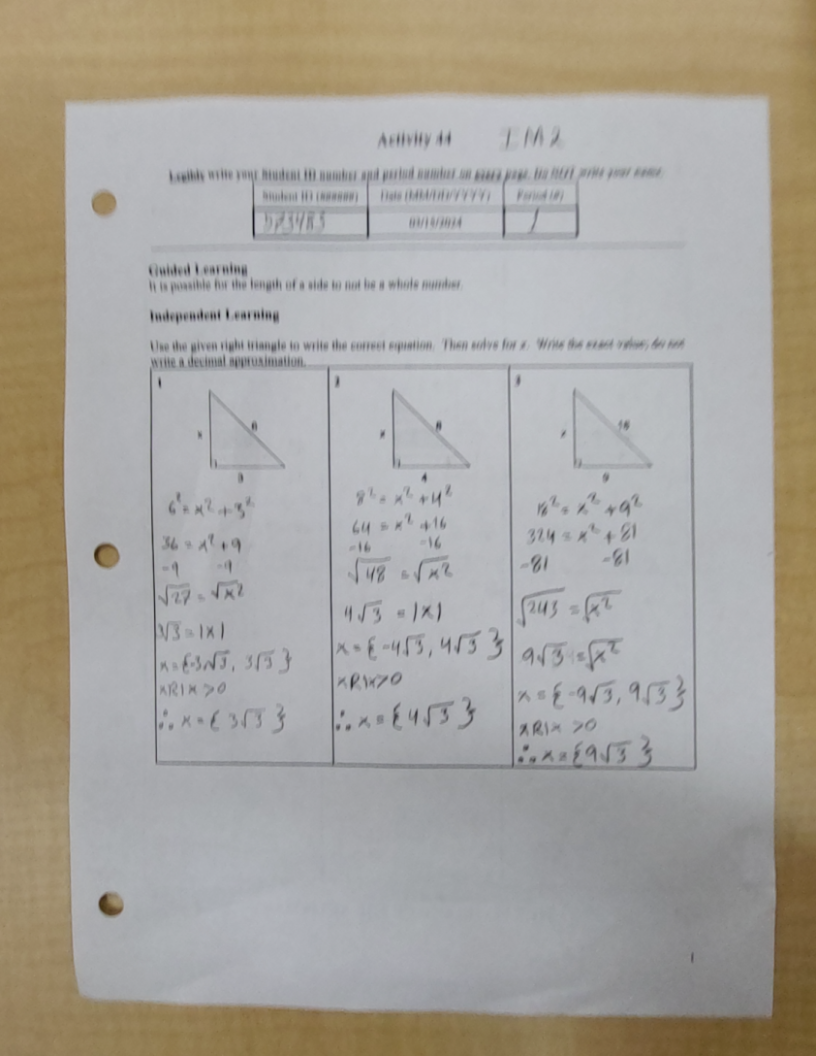 Activity 44 IM2
Legibly write your Student ID number and period number on every page. Do NOT write your name.
Student ID (######) Date (MM/DD/YYYY) Period (#)
03/15/2024 1
Guided Learning
It is possible for the length of a side to not be a whole number.
Independent Learning
Use the given right triangle to write the correct equation. Then solve for x. Write the exact value; do not
write a decimal approximation.
1
x
6
3
6² = x² + 3²
36 = x² + 9
-9 -9
√27 = √x²
3√3 = |x|
x = {-3√3, 3√3}
xR|x >0
∴ x = {3√3}
2
x
8
4
8² = x² + 4²
64 = x² +16
-16 -16
√48 = √x²
4√3 = |x|
x = {-4√3, 4√3}
xR|x>0
∴ x = {4√3}
3
x
18
9
18² = x² + 9²
324 = x² + 81
-81 -81
√243 = √x²
9√3 = √x²
x = {-9√3, 9√3}
xR|x >0
∴ x = {9√3}
1